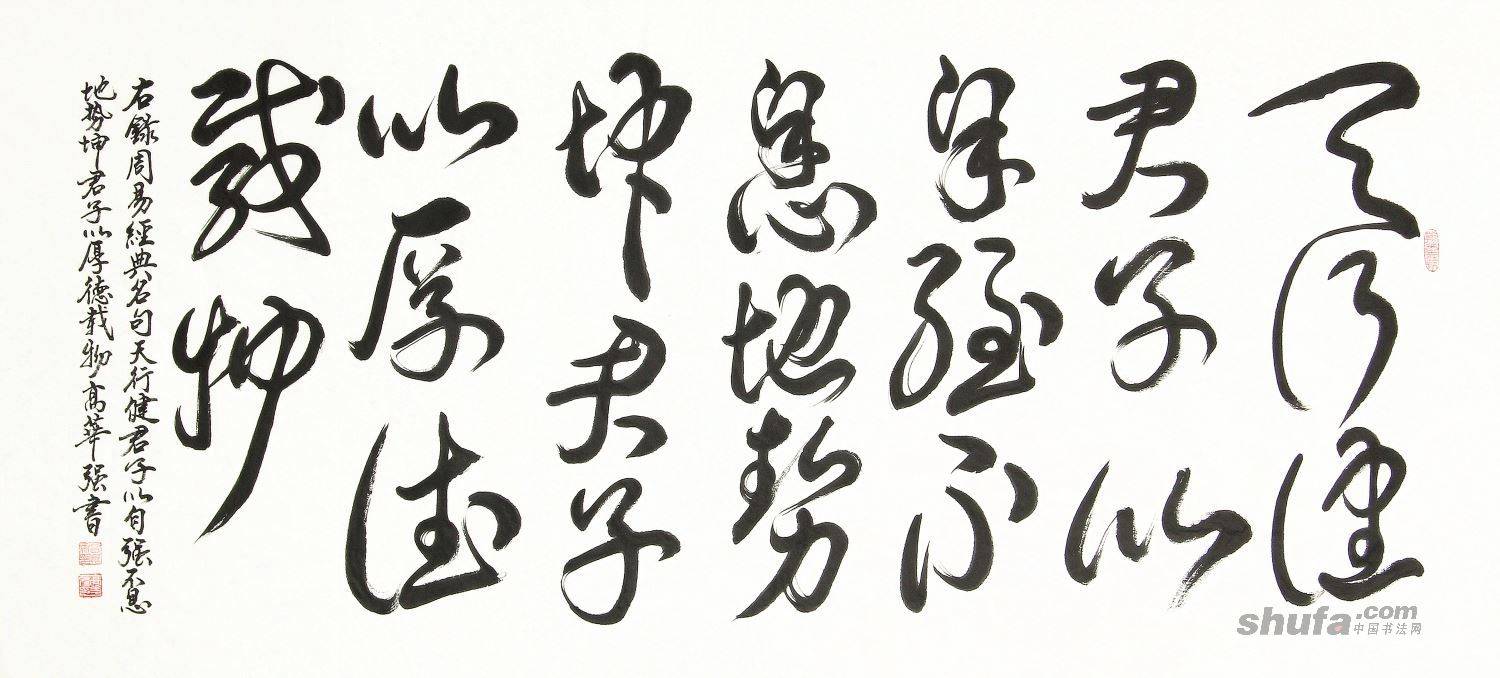 天行健
君子以
自强不
息地势
坤君子
以厚德
载物
右錄周易經典名句天行健君子以自强不息
地势坤君子以厚德载物高華强書
shufa.com
中国书法网